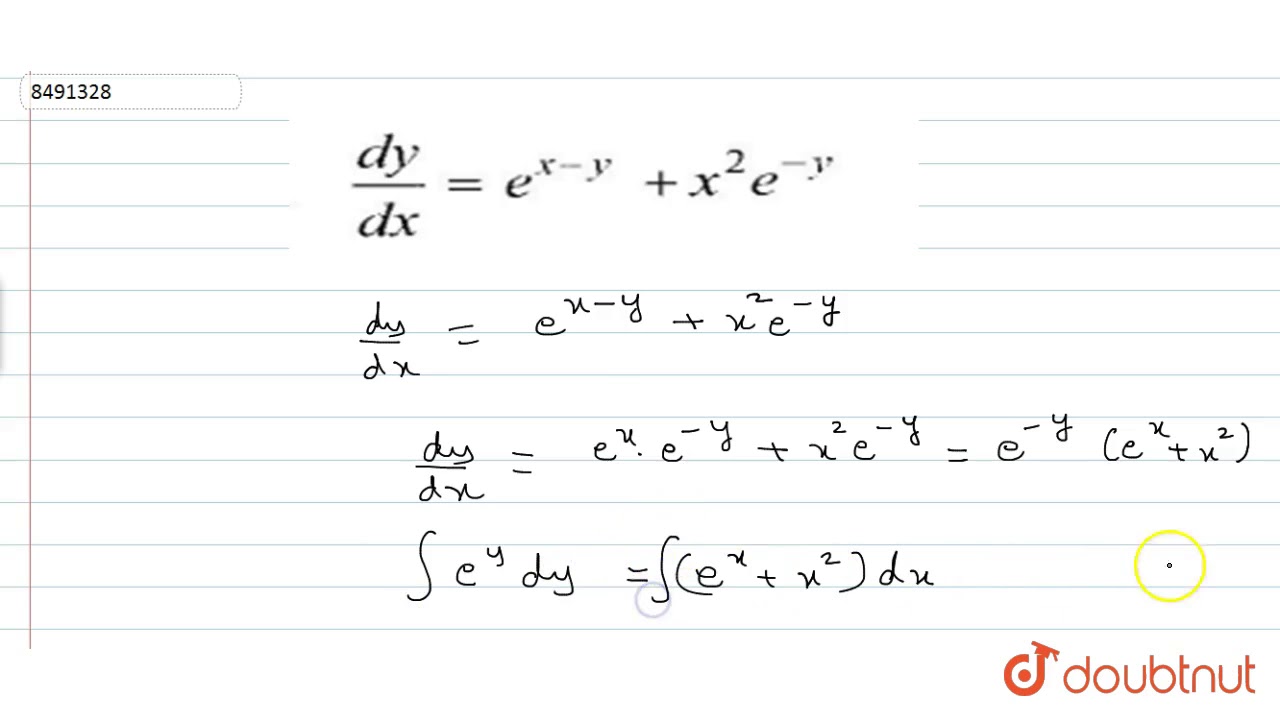 8491328
dy/dx = e^{x-y} + x^2 e^{-y}
dy/dx = e^{x-y} + x^2 e^{-y}
dy/dx = e^x . e^{-y} + x^2 e^{-y} = e^{-y} (e^x + x^2)
∫ e^y dy = ∫ (e^x + x^2) dx
doubtnut